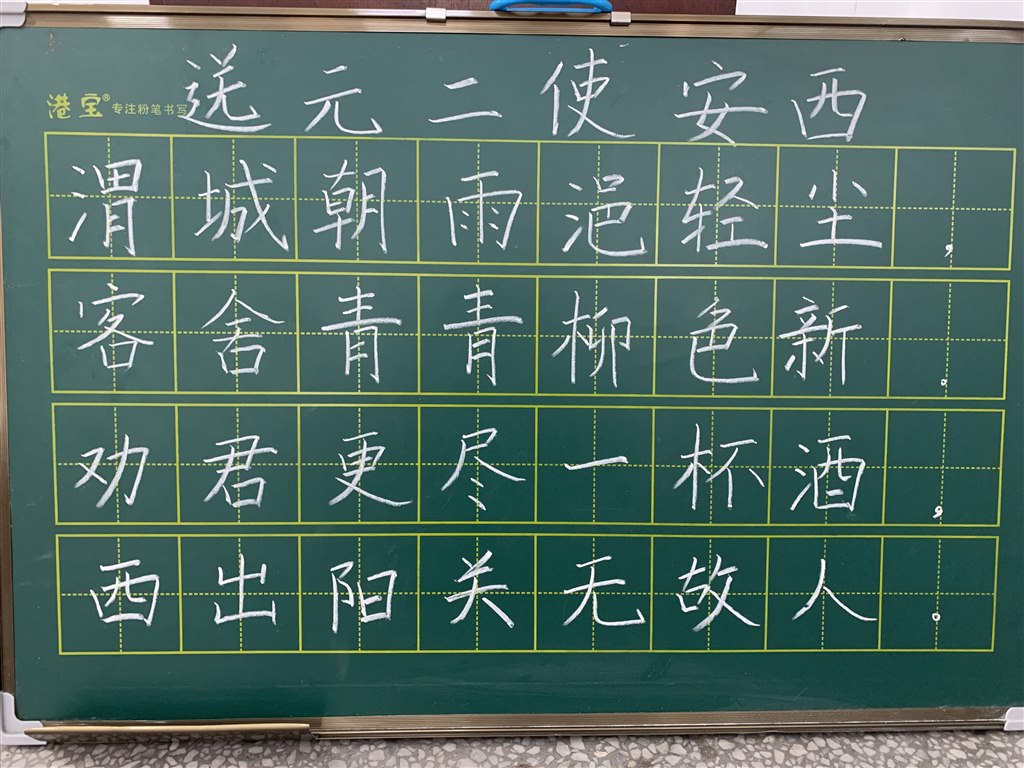 送元二使安西
港宝® 专注粉笔书写
渭城朝雨浥轻尘，
客舍青青柳色新。
劝君更尽一杯酒，
西出阳关无故人。